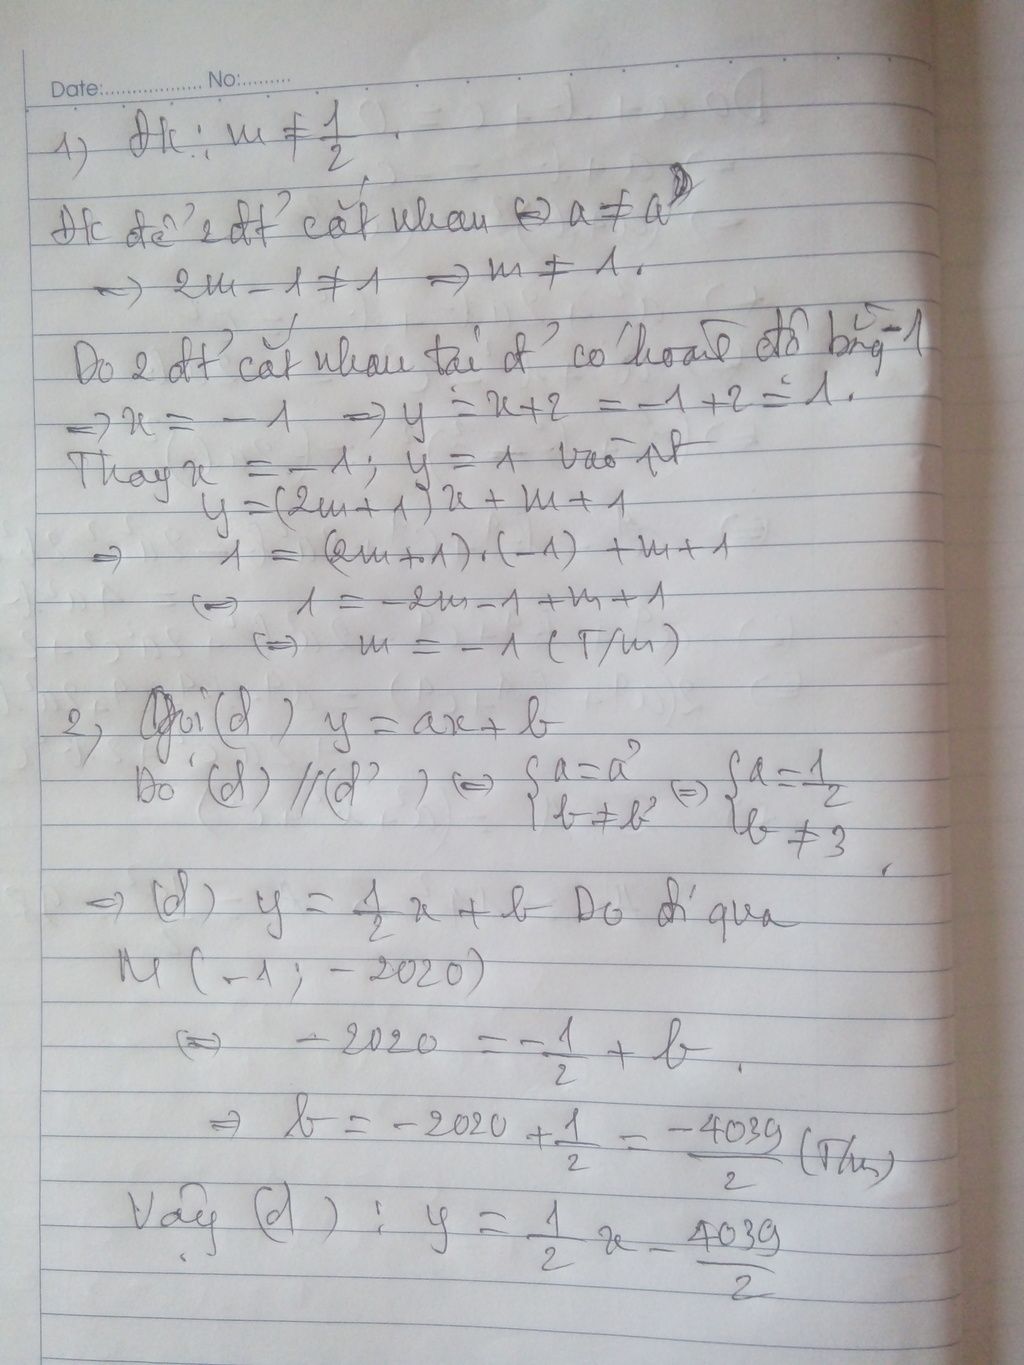 Date:................... No:.........
1) Đk : m ≠ 1/2 .
Đk để 2 đt cắt nhau ⇔ a ≠ a'
⇒ 2m - 1 ≠ 1 ⇒ m ≠ 1 .
Do 2 đt cắt nhau tại đ' có hoành độ bằng -1
⇒ x = - 1 ⇒ y = x + 2 = -1 + 2 = 1 .
Thay x = -1 ; y = 1 vào pt
y = (2m + 1) x + m + 1
⇒ 1 = (2m + 1) . (-1) + m + 1
⇔ 1 = -2m - 1 + m + 1
⇔ m = -1 (T/m)
2, Gọi (d) y = ax + b
Do (d) // (d') ⇔ { a = a' b ≠ b' ⇔ { a = 1/2 b ≠ 3 ,
⇒ (d) y = 1/2 x + b Do đi qua
M (-1 ; -2020)
⇔ -2020 = -1/2 + b .
⇒ b = -2020 + 1/2 = -4039/2 (T/m)
Vậy (d) : y = 1/2 x - 4039/2